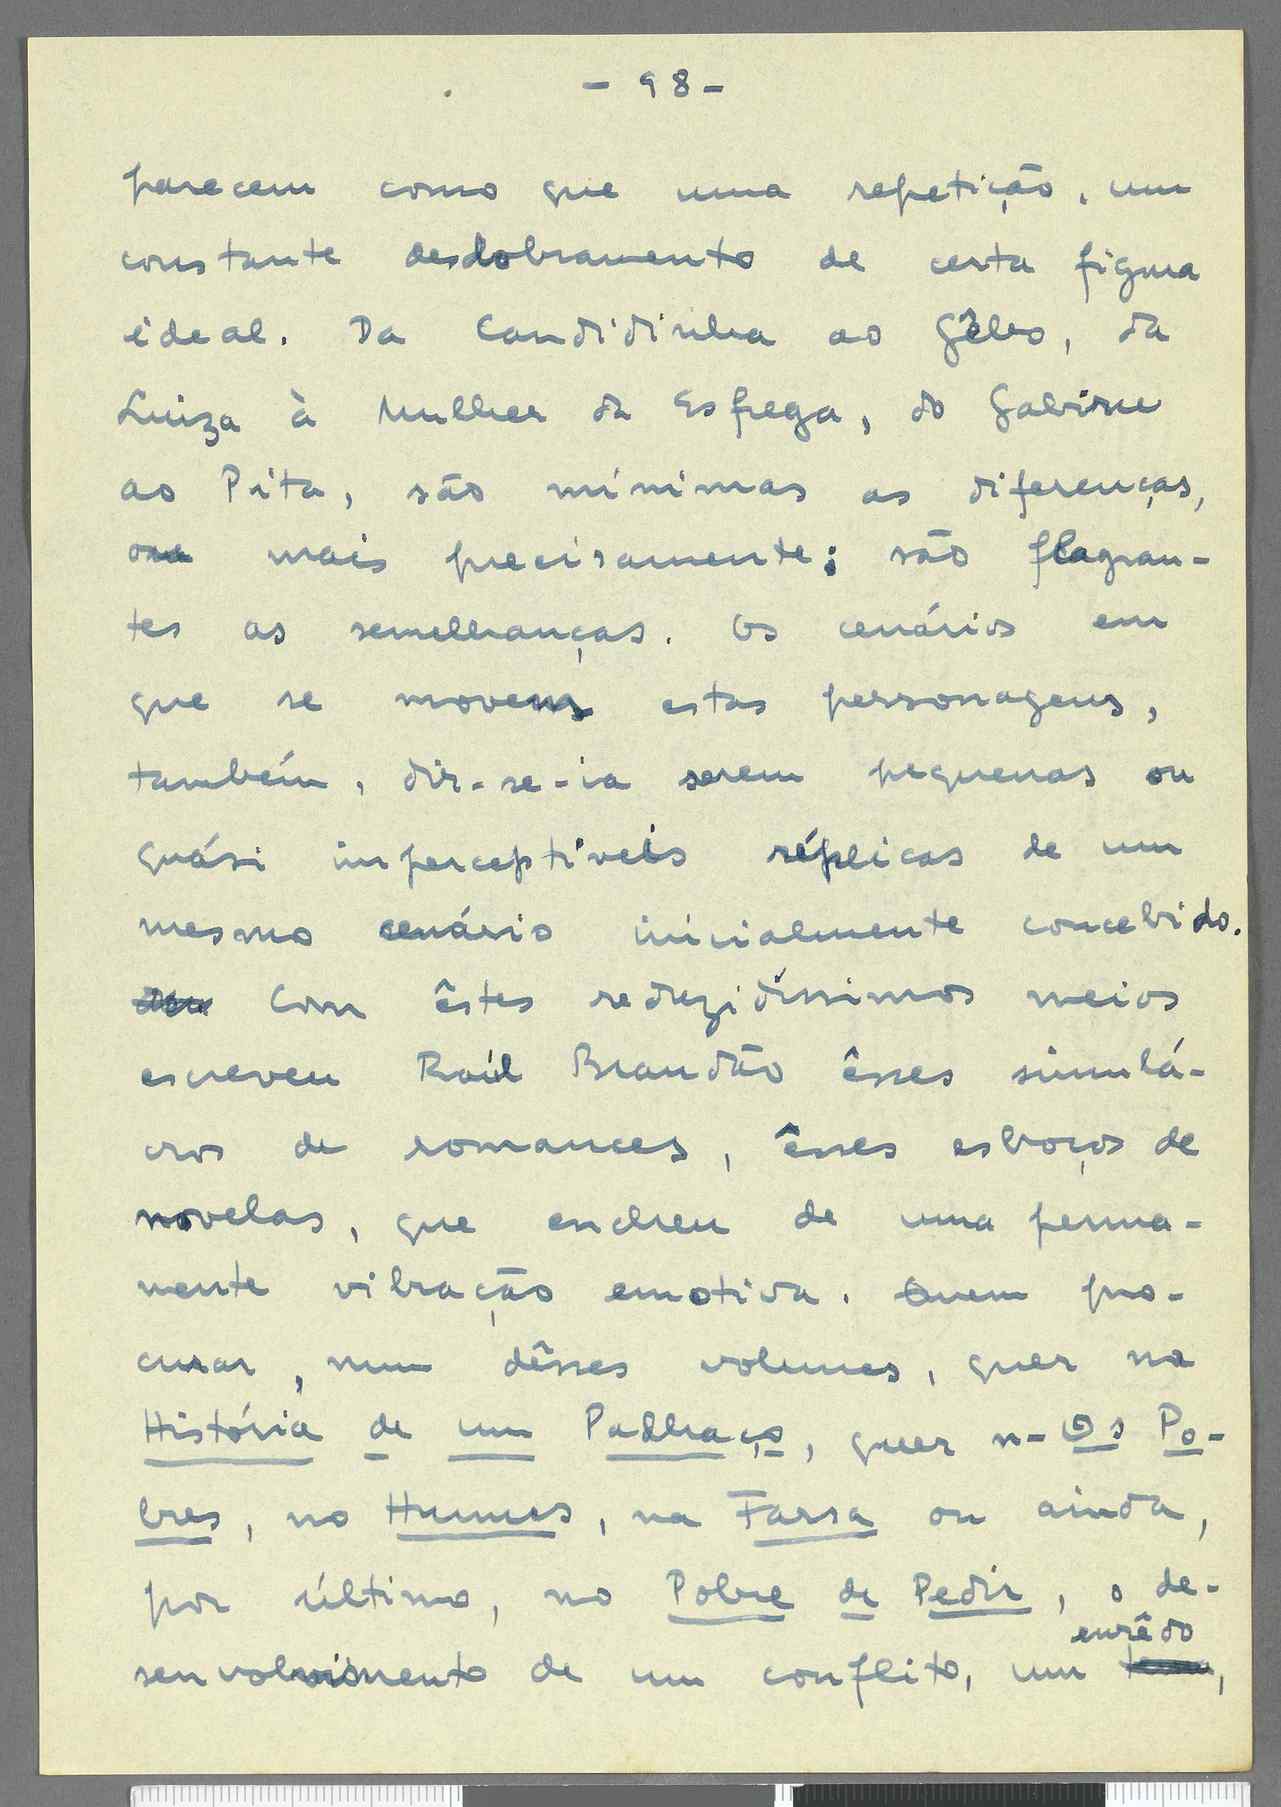 - 98 -
parecem como que uma repetição, um
constante desdobramento de certa figura
ideal. Da Candidinha ao Gêbo, da
Luiza à Mulher da Esfrega, do Gabiru
ao Pita, são mínimas as diferenças,
ou mais precisamente: são flagran-
tes as semelhanças. Os cenários em
que se movem estas personagens,
também, dir-se-ia serem pequenas ou
quási imperceptíveis réplicas de um
mesmo cenário inicialmente concebido.
Com êstes reduzidíssimos meios
escreveu Raúl Brandão êsses simulá-
cros de romances, êsses esboços de
novelas, que encheu de uma perma-
nente vibração emotiva. Quem pro-
curar, num dêsses volumes, quer na
História de um Padlhaço, quer n-Os Po-
bres, no Humus, na Farsa ou ainda,
por último, no Pobre de Pedir, o de-
enrêdo
senvolvimento de um conflito, um tema,